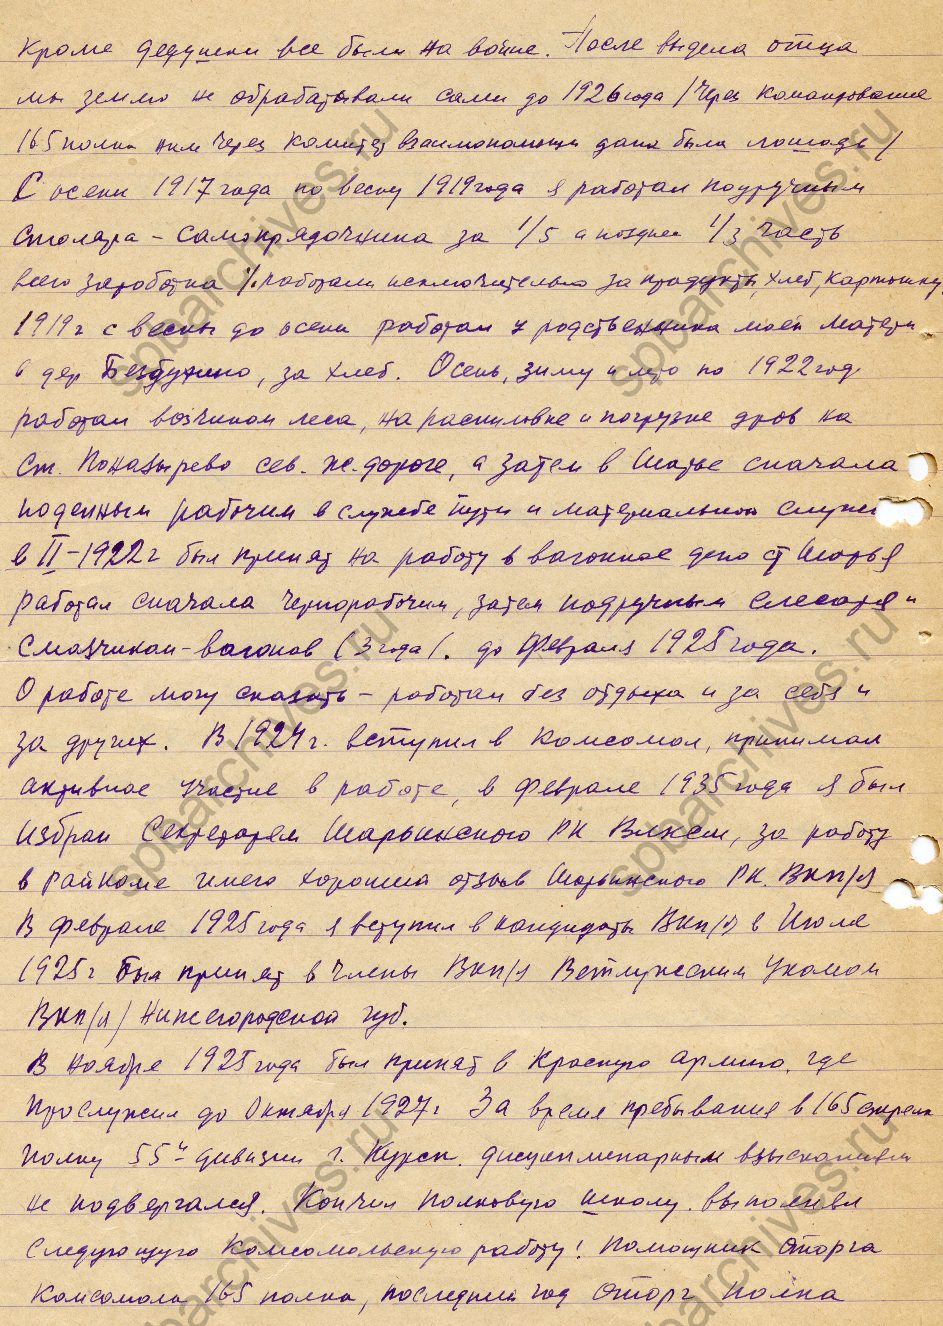 кроме дедушки все были на войне. После выдела отца
мы землю не обрабатывали сами до 1926 года / Через командование
165 полка им через Комитет взаимопомощи дана была лошадь /
С осени 1917 года по весну 1919 года я работал подручным
столяра - самопрядочника за 1/5 а позднее 1/3 часть
всего заработка /. работали исключительно за продукты, хлеб, картошку
1919 г с весны до осени работал у родственника моей матери
в дер Бездужино, за хлеб. Осень, зиму и лето по 1922 год
работал возчиком леса, на распиловке и погрузке дров на
ст. Поназырево сев. ж. дороге, а затем в Шарье сначала
поденным рабочим в службе пути и материальной служ
в II-1922 г был принят на работу в вагонное депо ст Шарья
работал сначала чернорабочим, затем подручным слесаря и
смазчиком-вагонов (3 года/. до февраля 1925 года.
О работе могу сказать - работал без отдыха и за себя и
за других. В 1924 г. вступил в комсомол, принимал
активное участие в работе, в феврале 1935 года я был
избран секретарем Шарьинского РК ВЛКСМ, за работу
в райкоме имею хороший отзыв Шарьинского РК. ВКП/б
В феврале 1925 года я вступил в кандидаты ВКП/б в Июле
1925 г был принят в члены ВКП/б Ветлужским Укомом
ВКП/б/ Нижегородской губ.
В ноябре 1925 года был принят в Красную армию, где
прослужил до Октября 1927 г За время пребывания в 165 стрелк
полку 55й дивизии г. Курск. дисциплинарным взысканиям
не подвергался. Кончил полковую школу. выполнял
следующую комсомольскую работу! помощник Оторга
комсомола 165 полка, последний год Оторг полка
spbarchives.ru
spbarchives.ru
spbarchives.ru
spbarchives.ru
spbarchives.ru
spbarchives.ru